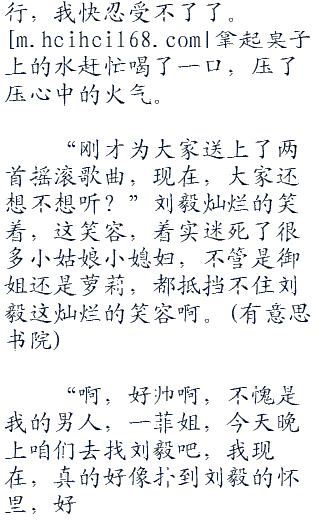 行，我快忍受不了了。
[m.hcihci168.com|拿起桌子
上的水赶忙喝了一口，压了
压心中的火气。
“刚才为大家送上了两
首摇滚歌曲，现在，大家还
想不想听？”刘毅灿烂的笑
着，这笑容，着实迷死了很
多小姑娘小媳妇，不管是御
姐还是萝莉，都抵挡不住刘
毅这灿烂的笑容啊。(有意思
书院)
“啊，好帅啊，不愧是
我的男人，一菲姐，今天晚
上咱们去找刘毅吧，我现
在，真的好像扑到刘毅的怀
里，好